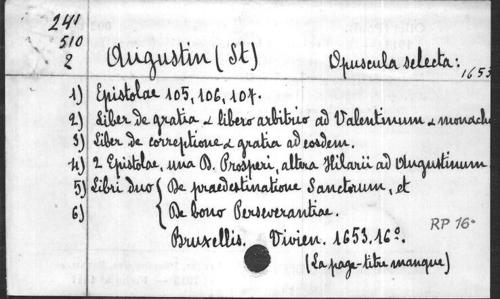 241
510
2
Augustin (St) Opuscula selecta: 1653
1) Epistolae 105, 106, 107.
2) Liber de gratia & libero arbitrio ad Valentinum & monach
3) Liber de correptione & gratia ad eosdem.
4) 2 Epistolae, una D. Prosperi, altera Hilarii ad Augustinum
5) Libri duo { De praedestinatione Sanctorum, et
6) De bono Perseverantiae.
Bruxellis. Vivien. 1653. 16º.
RP 16º
(La page-titre manque)